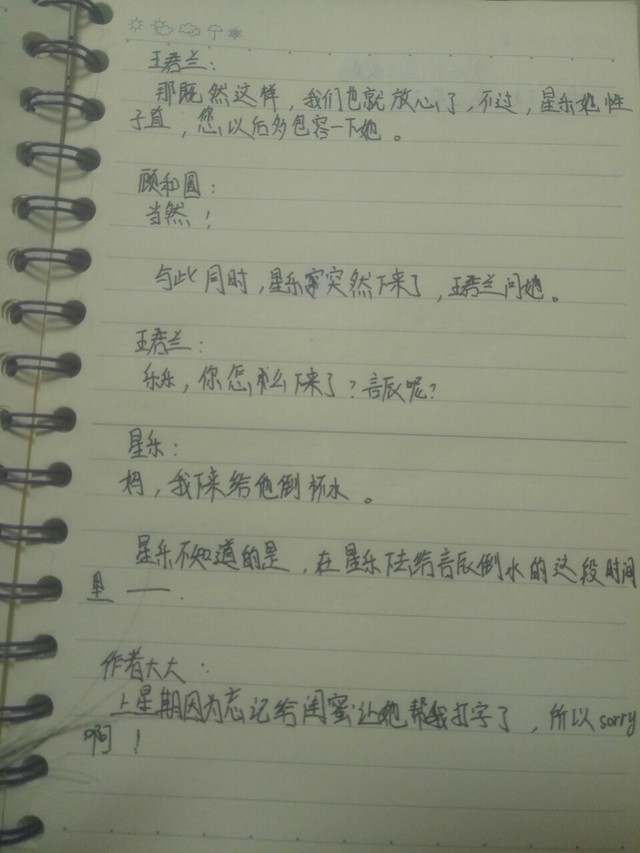 王君兰：
那既然这样，我们也就放心了，不过，星乐她性
子直，您以后多包容一下她。
顾和圆：
当然！
与此同时，星乐突然下来了，王君兰问她。
王君兰：
乐乐，你怎么下来了？言辰呢？
星乐：
妈，我下来给他倒杯水。
星乐不知道的是，在星乐下去给言辰倒水的这段时间
里——.
作者大大：
上星期因为忘记给闺蜜让她帮我打字了，所以sorry
啊！